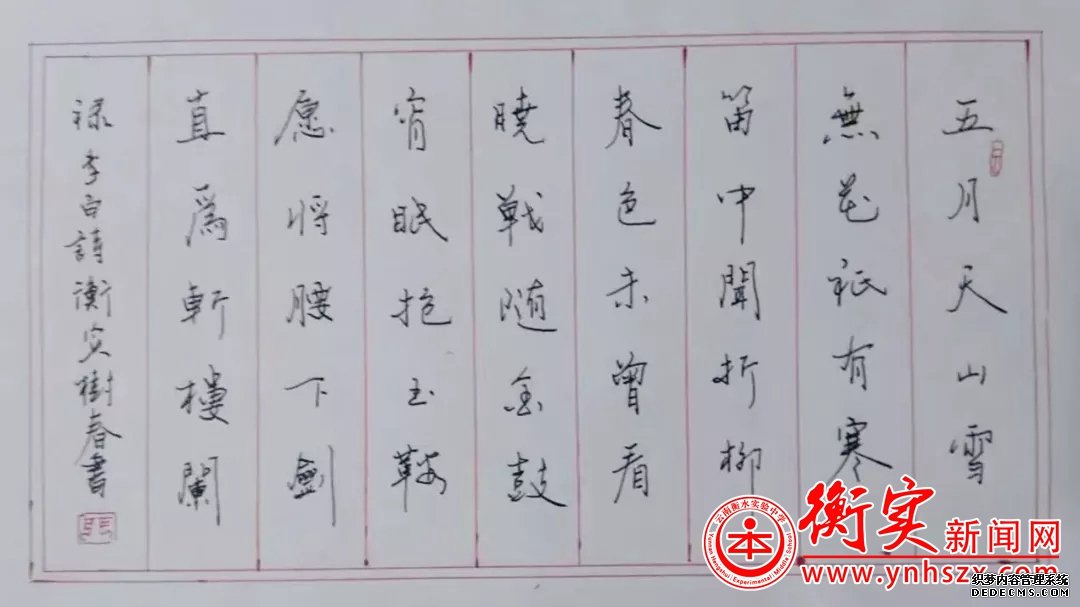 五月天山雪
無花衹有寒
笛中聞折柳
春色未曾看
曉戰随金鼓
宵眠抱玉鞍
愿将腰下劍
直爲斬樓闌
禄李白詩衡实樹春書
云南衡水实验中学
Yunnan Hengshui Experimental Middle School
本
衡实新闻网
www.ynhszx.com
织梦内容管理系统
DEDECMS.COM